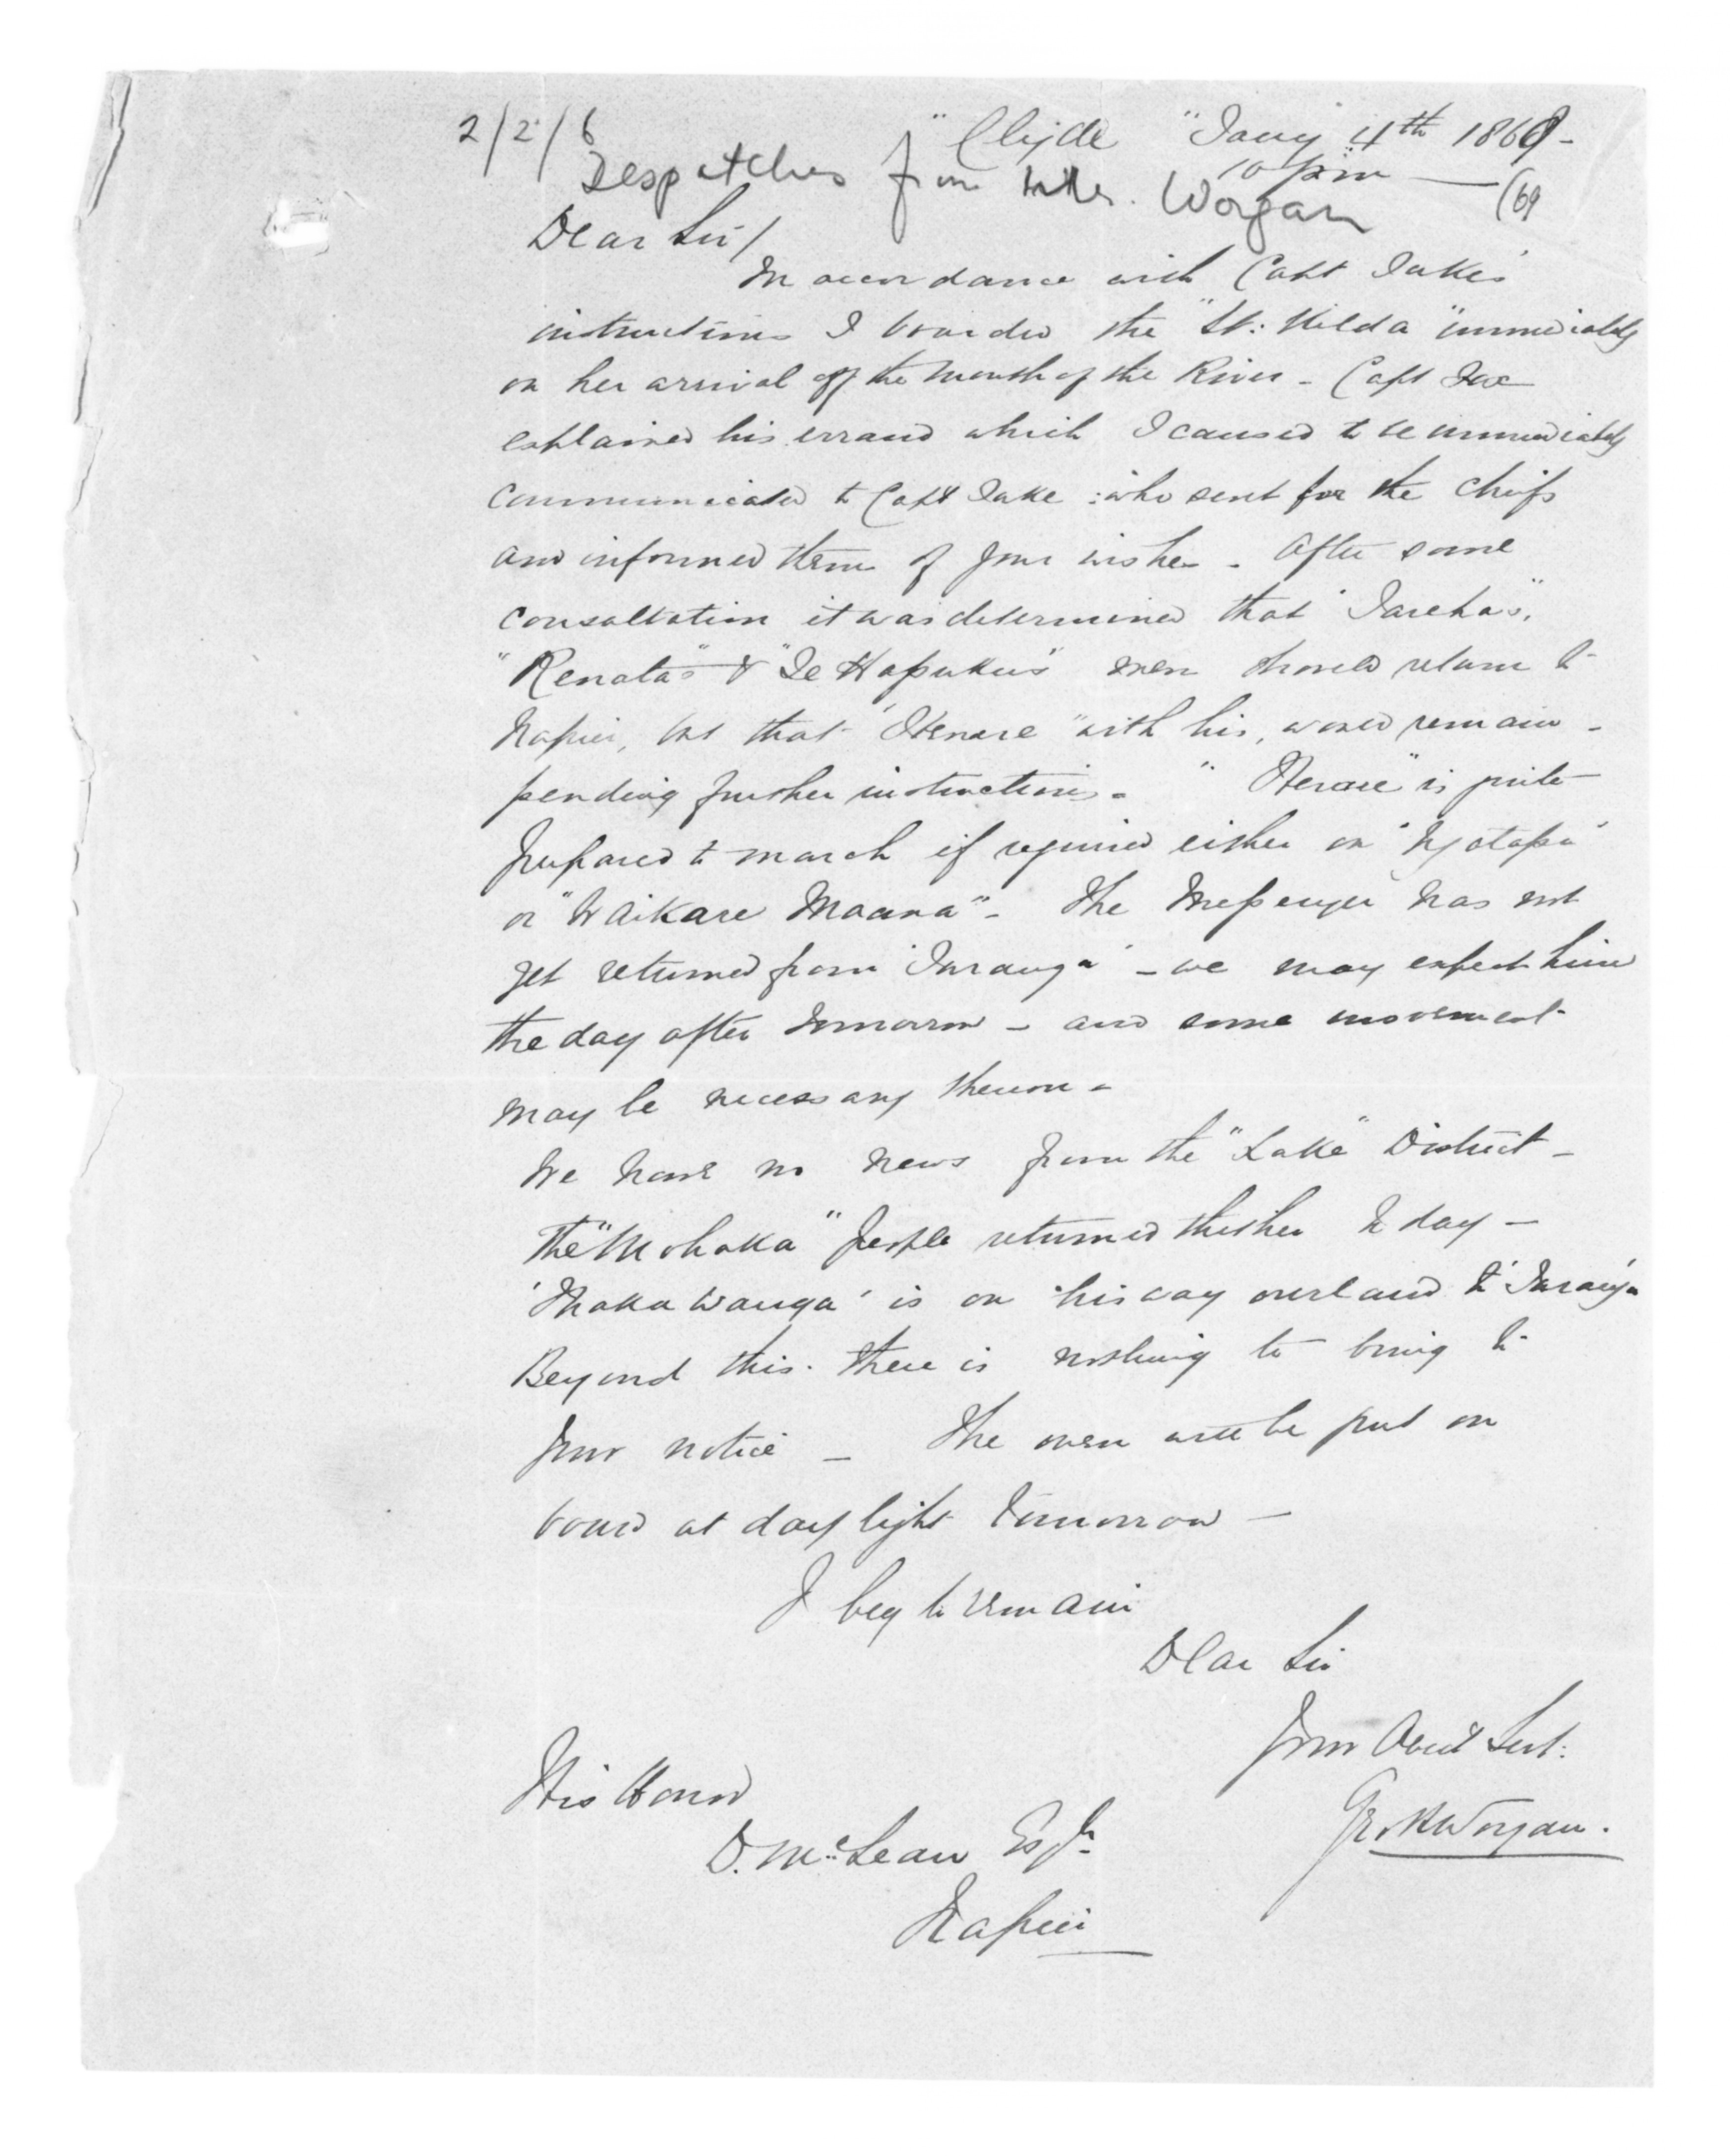 2/2/6
"Clyde" Jany 4th 1869 -
10 pm — (69
Despatches from Worgan
Dear Sir/
In accordance with Capt Tuke's
instructions I boarded the "St: Kilda" immediately
on her arrival off the mouth of the River - Capt Fox
explained his errand which I caused to be immediately
communicated to Capt Tuke : who sent for the chiefs
and informed them of your wishes - After some
consultation it was determined that "Tareha's",
"Renata's" & "Te Hapuku's" men should return to
Napier, but that "Henare" with his, would remain -
pending further instructions - "Henare" is quite
prepared to march if required either on "Ngatapa"
or "Waikare Moana" - The Messenger has not
yet returned from "Turanga" - we may expect him
the day after tomorrow - and some movement
may be necessary thereon -
We have no news from the "Lake" District -
The "Mohaka" people returned thither to day -
"Ihaka Wanga" is on his way overland to "Turanga"
Beyond this there is nothing to bring to
your notice - The men will be put on
board at daylight tomorrow -
I beg to remain
Dear Sir
Your Obedt Servt:
Geo. Worgan.
His Honor
D. McLean Esqr
Napier